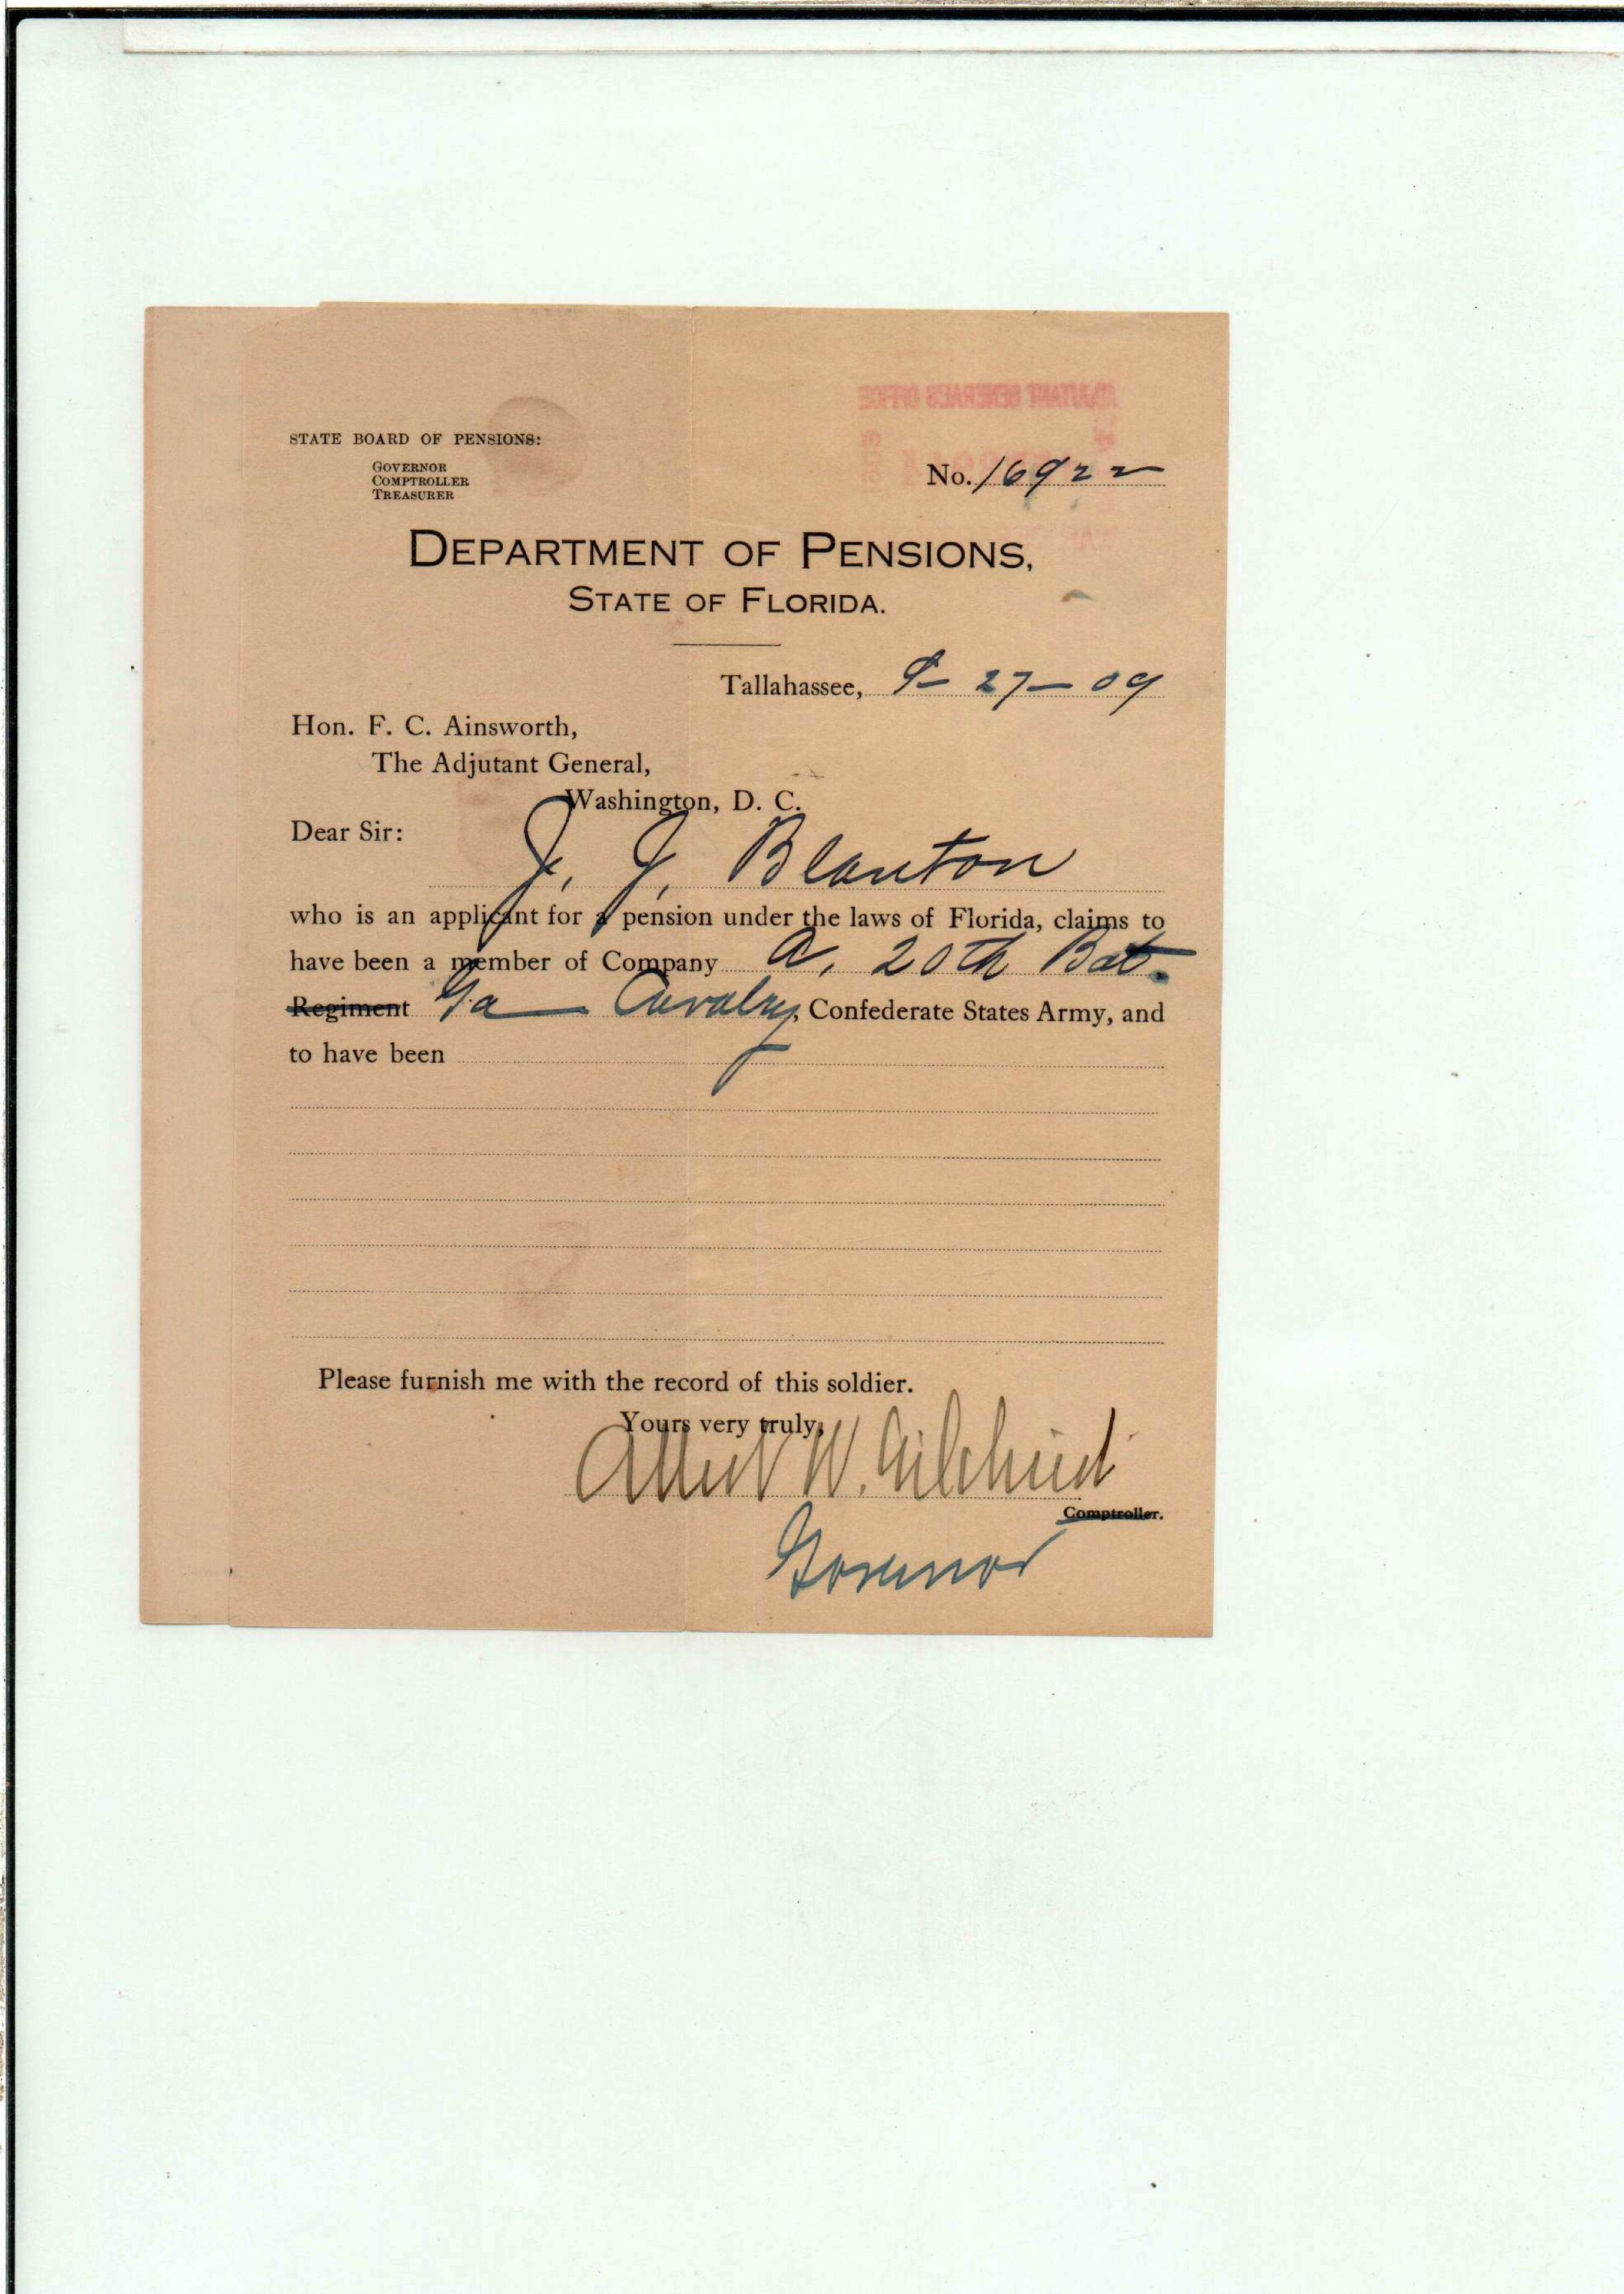 ADJUTANT GENERAL'S OFFICE
STATE BOARD OF PENSIONS:
GOVERNOR
COMPTROLLER
TREASURER
No. 16922
DEPARTMENT OF PENSIONS,
STATE OF FLORIDA.
Tallahassee, 9-27-09
Hon. F. C. Ainsworth,
The Adjutant General,
Washington, D. C.
Dear Sir:
J. J. Blanton
who is an applicant for a pension under the laws of Florida, claims to
have been a member of Company A, 20th Bat.
Regiment Ga Cavalry, Confederate States Army, and
to have been
Please furnish me with the record of this soldier.
Yours very truly,
Albert W. Gilchrist
Comptroller.
Governor